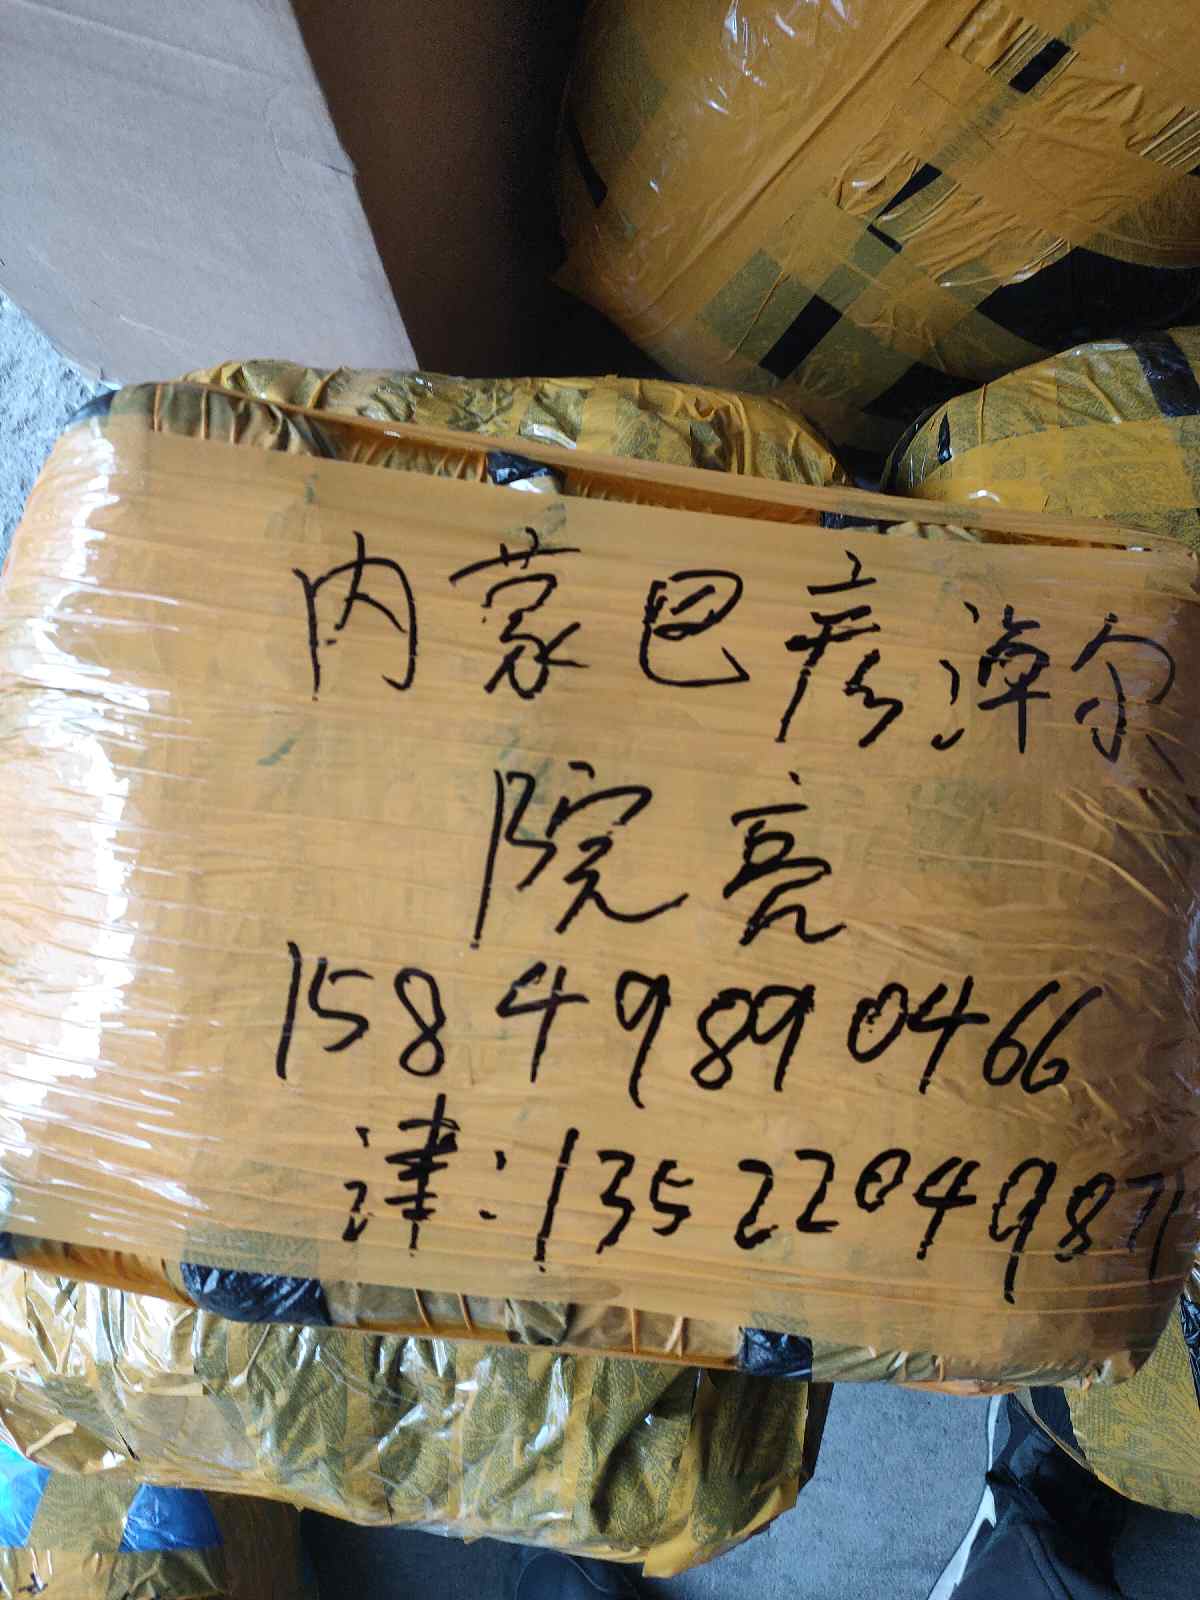 内蒙巴彦淖尔
院亮
15849890466
津:13522049871